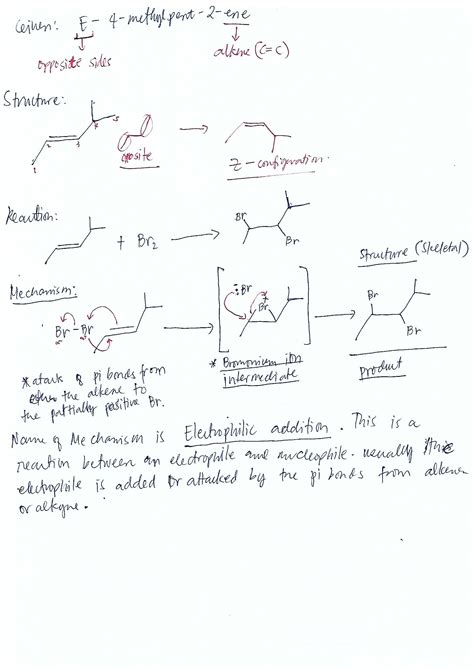 Given: E - 4-methylpent-2-ene
opposite sides
alkene (C=C)
Structure:
1 2 3 4 5
oposite
Z-configuration.
Reaction:
+ Br2
Br
Br
Structure (Skeletal)
Mechanism:
Br-Br
:Br
Br
Br
Br
* Bromonium ion
intermediate
product
*atack of pi bonds from
the alkene to
the partially positive Br.
Name of Mechanism is Electrophilic addition. This is a
reaction between an electrophile and nucleophile. usually the
electrophile is added or attacked by the pi bonds from alkene
or alkyne.